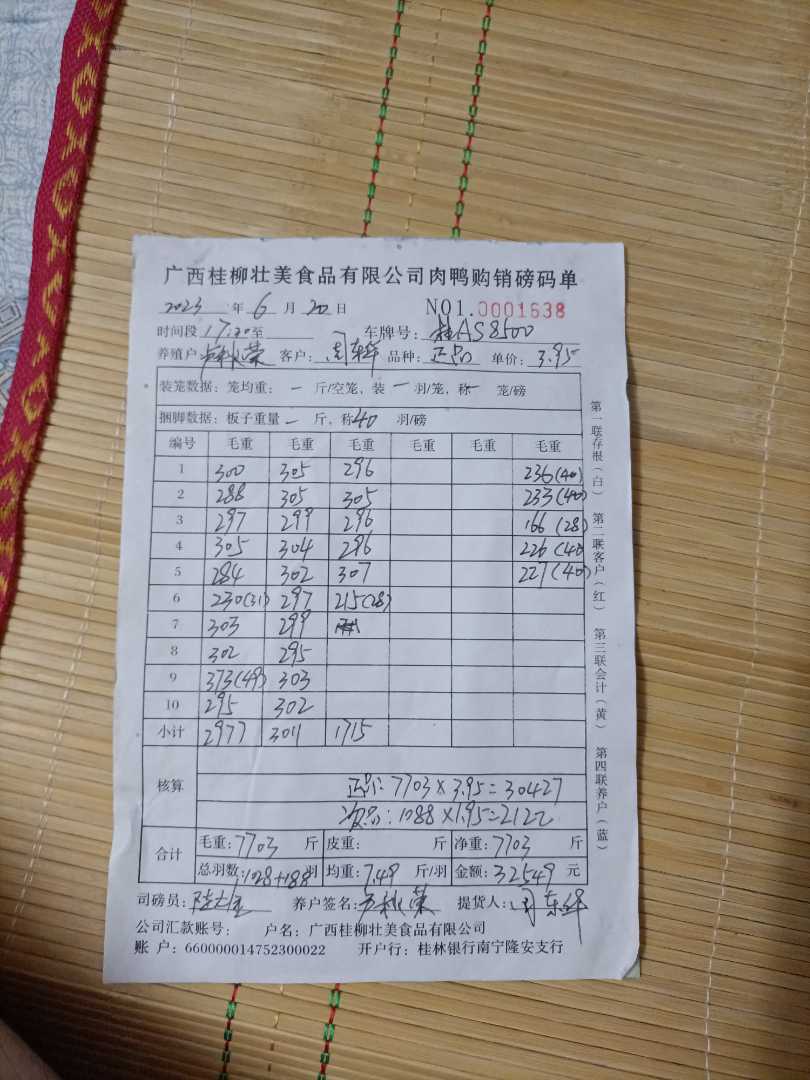 广西桂柳壮美食品有限公司肉鸭购销磅码单
2023 年 6 月 20 日 NO1.0001638
时间段 17:20至 车牌号: 桂AS8500
养殖户 客户: 品种: 正品 单价: 3.95
装笼数据: 笼均重: 一 斤/空笼, 装 一 羽/笼, 称一 笼/磅
捆脚数据: 板子重量 一 斤, 称40 羽/磅
编号 毛重 毛重 毛重 毛重 毛重 毛重
1 300 305 296 236(40)
2 288 305 305 233(40)
3 297 299 296 166(28)
4 305 304 296 226(40
5 284 302 307 227(40)
6 230(31) 297 215(28)
7 303 299
8 302 295
9 373(49) 303
10 295 302
小计 2977 3011 1715
核算
正品: 7703×3.95=30427
次品: 1088×1.95=2122
合计 毛重: 7703 斤 皮重: 斤 净重: 7703 斤
总羽数: 1028+188羽 均重: 7.49 斤/羽 金额: 32549 元
司磅员: 养户签名: 提货人:
公司汇款账号: 户名: 广西桂柳壮美食品有限公司
账 户: 660000014752300022 开户行: 桂林银行南宁隆安支行
第一联存根(白) 第二联客户(红) 第三联会计(黄) 第四联养户(蓝)